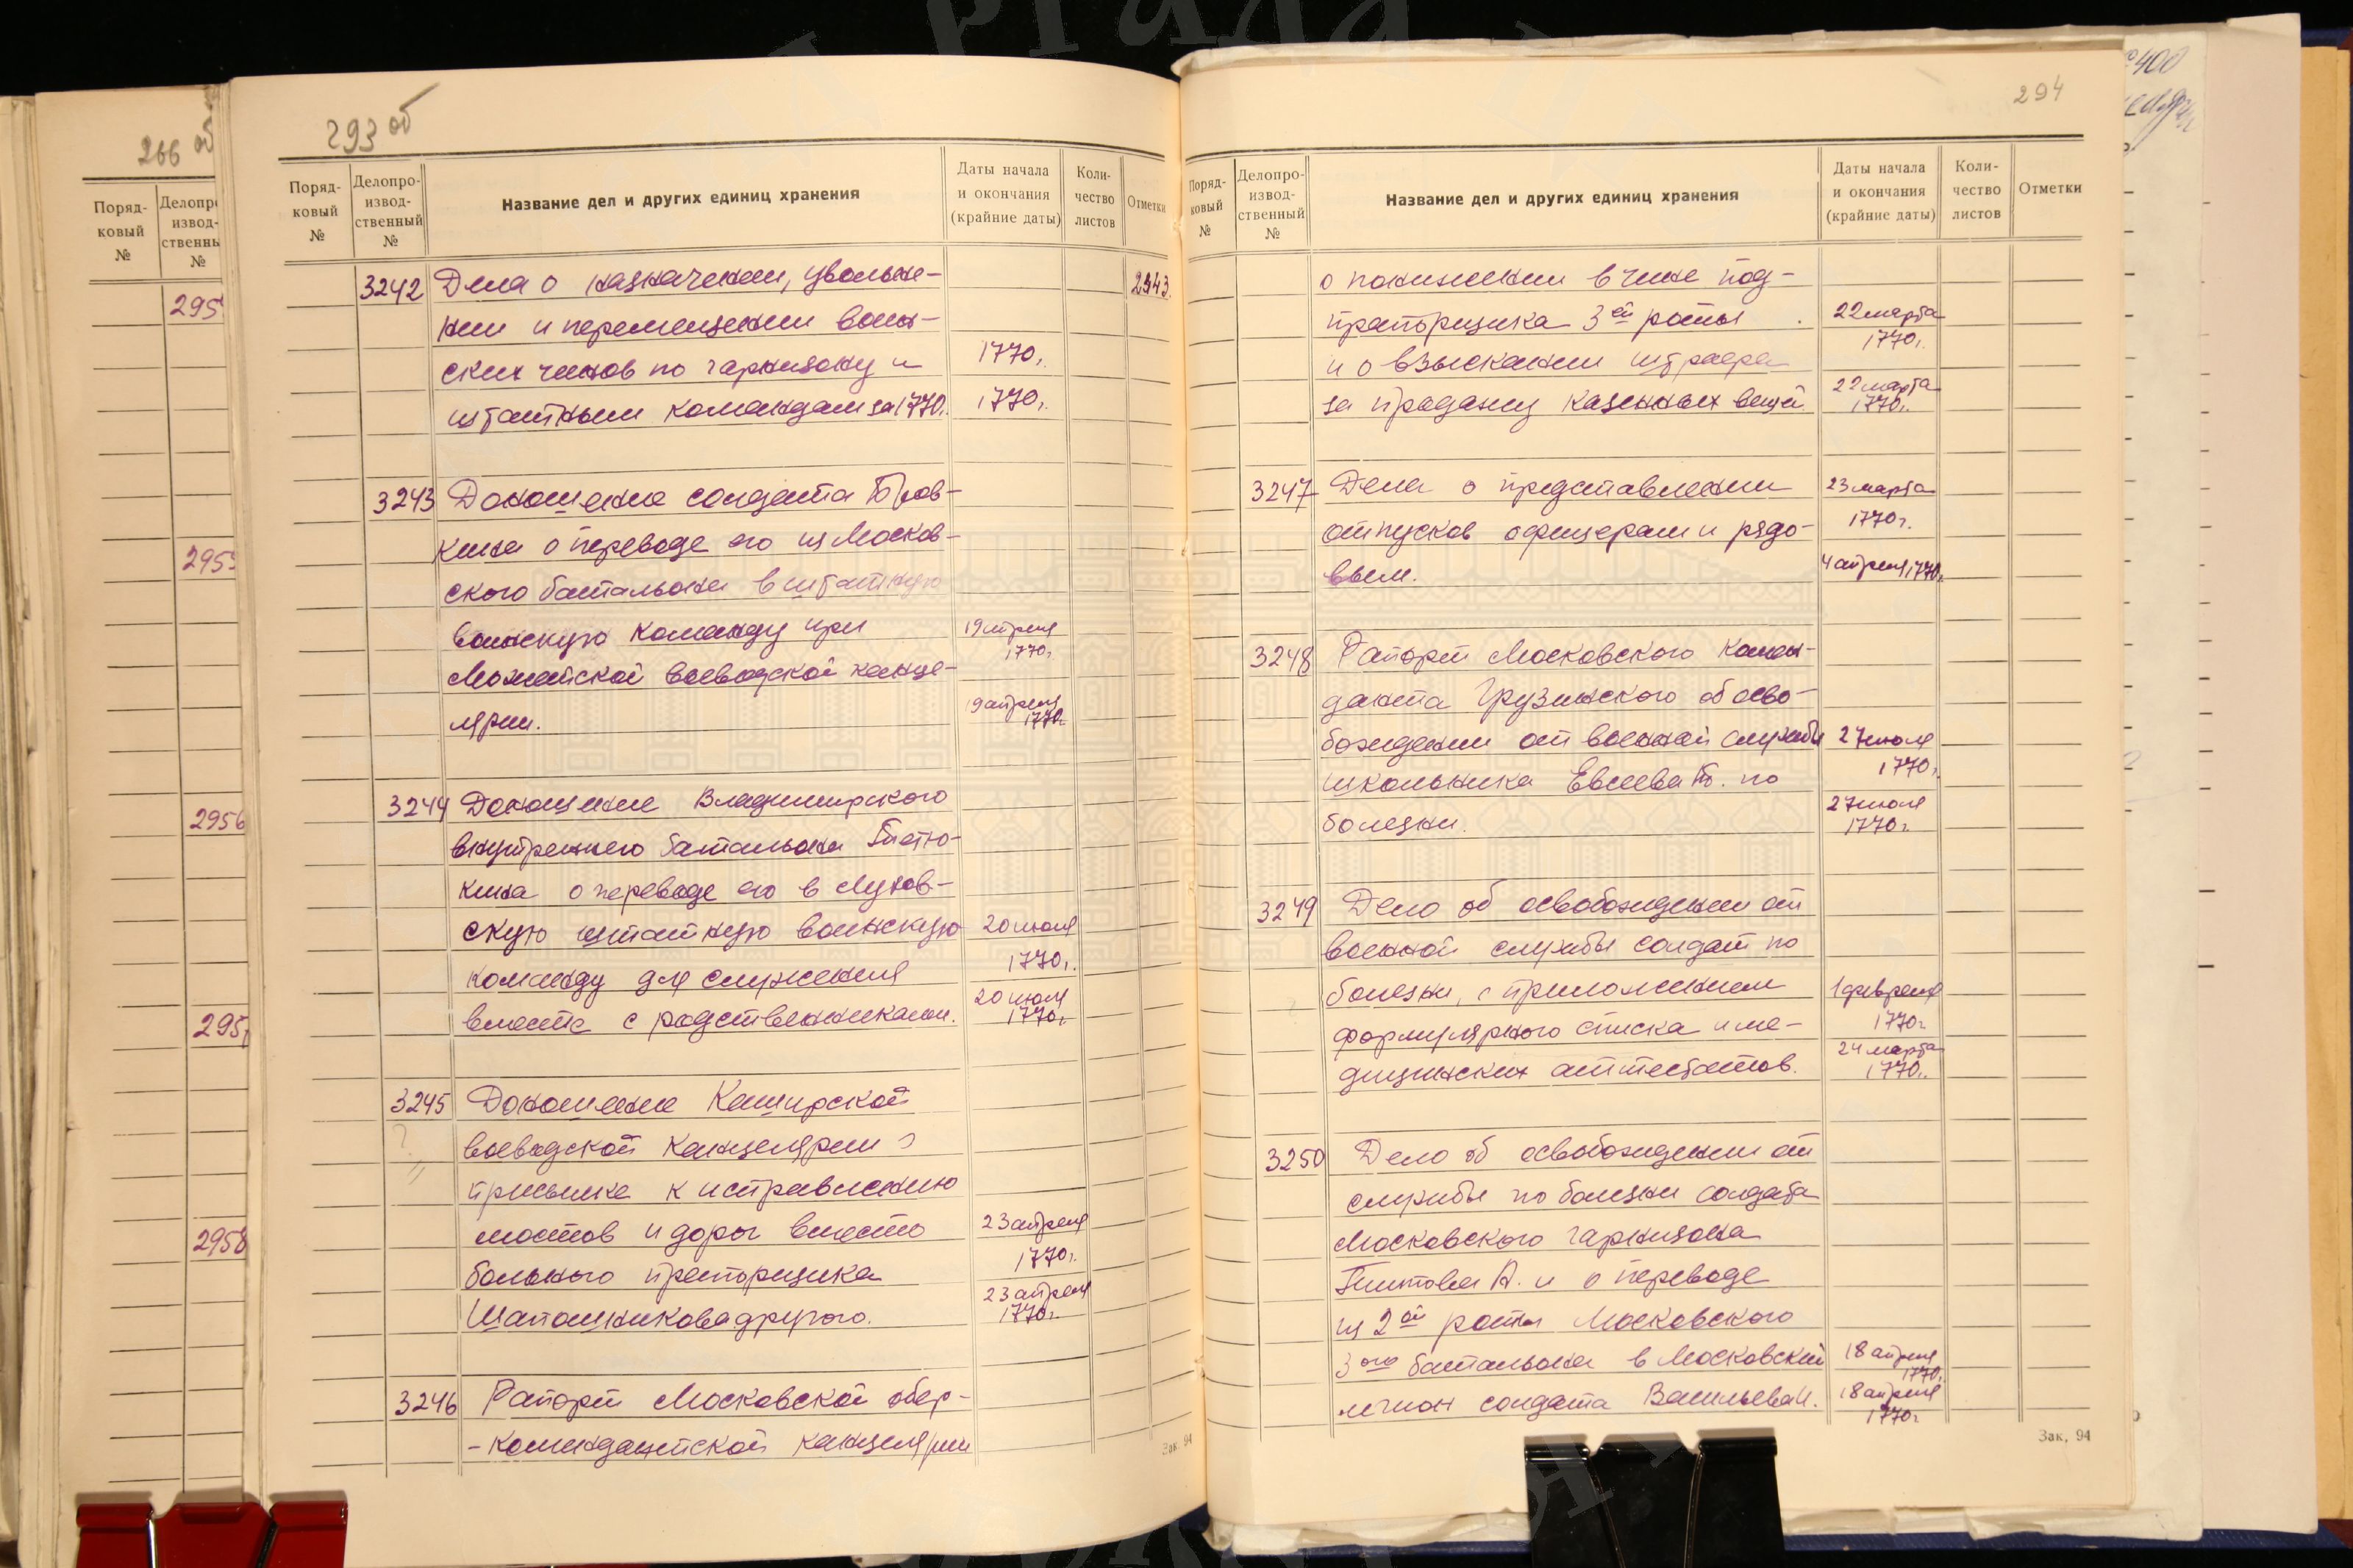 266 об
Поряд-
ковый
№
Делопро
извод-
ственны
№
295
2955
2956
295
2958
293 об
Поряд-
ковый
№
Делопро-
извод-
ственный
№
Название дел и других единиц хранения
Даты начала
и окончания
(крайние даты)
Коли-
чество
листов
Отметки
3242 Дела о назначении, увольне- 2543
нии и перемещении воин-
ских чинов по гарнизону и 1770г.
штатным командам за 1770г. 1770г.
3243 Доношение солдата
о переводе его из Москов-
ского батальона в штатную
воинскую команду при 19 апреля
1770г.
Можайской воеводской канце-
лярии. 19 апреля
1770г.
3244 Доношение Владимирского
внутреннего батальона
кина о переводе его в
скую штатную воинскую 20 июля
команду для служения 1770г.
вместе с родственниками. 20 июля
1770г.
3245 Доношение Каширской
воеводской канцелярии о
присылке к исправлению
мостов и дорог вместо 23 апреля
1770г.
больного прапорщика
Шапошникова другого. 23 апреля
1770г.
3246 Рапорт Московской обер-
-комендантской канцелярии
Зак. 94
294
Поряд-
ковый
№
Делопро-
извод-
ственный
№
Название дел и других единиц хранения
Даты начала
и окончания
(крайние даты)
Коли-
чество
листов
Отметки
о понижении в чине под-
прапорщика 3ей роты 22 марта
1770г.
и о взыскании штрафа
за продажу казенных вещей 22 марта
1770г.
3247 Дела о предоставлении 23 марта
отпусков офицерам и рядо- 1770г.
вым. 4 апреля 1770г.
3248 Рапорт Московского комен-
данта Грузинского об осво-
бождении от военной службы 27 июля
школьника Евсеева по 1770г.
болезни. 27 июля
1770г.
3249 Дело об освобождении от
военной службы солдат по
болезни, с приложением 1 февраля
формулярного списка и ме- 1770г.
дицинских аттестатов. 24 марта
1770г.
3250 Дело об освобождении от
службы по болезни солдата
Московского гарнизона
А. и о переводе
из 2ой роты Московского
3ого батальона в Московский 18 апреля
1770г.
легион солдата Васильева И. 18 апреля
1770г.
Зак. 94